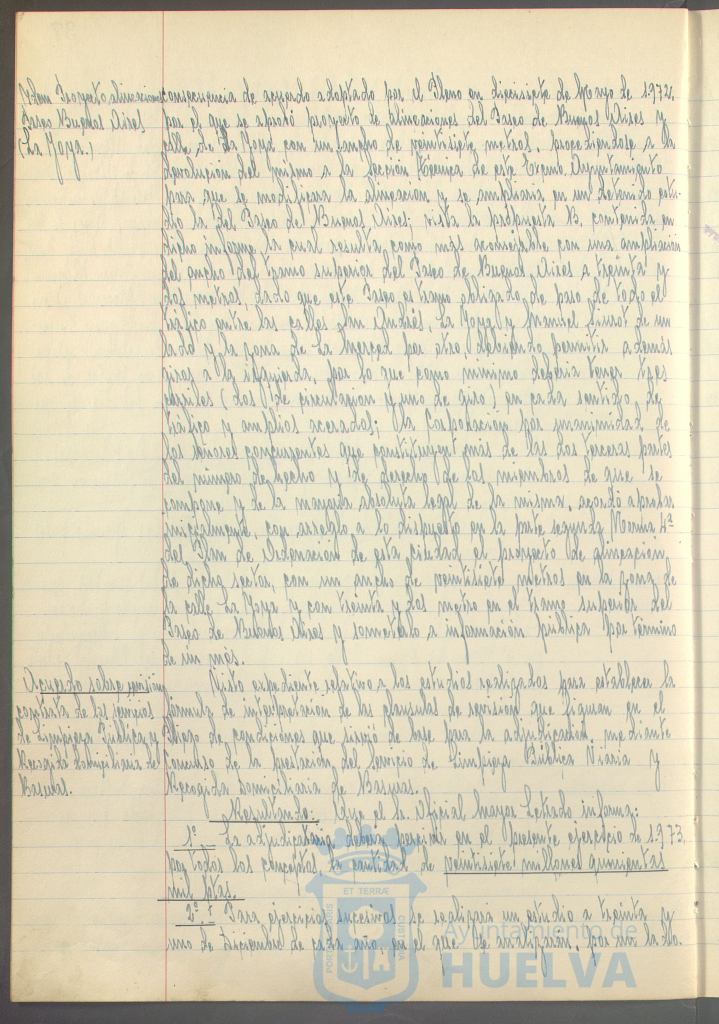 Idem Proyecto alineaciones
Paseo Buenos Aires
(La Joya.)
consecuencia de acuerdo adoptado por el Pleno en diecisiete de Mayo de 1.972,
por el que se aprobó proyecto de alineaciones del Paseo de Buenos Aires y
calle de La Joya con un ancho de veintisiete metros, procediendose a la
devolución del mismo a la Sección Tecnica de este Excmo Ayuntamiento
para que se modificara la alineacion y se ampliaria en un detenido estu-
dio la del Paseo del Buenos Aires; vista la propuesta B, contenida en
dicho informe la cual resulta, como más aconsejable con una ampliacion
del ancho del tramo superior del Paseo de Buenos Aires a treinta y
dos metros, dado que este Paseo es tramo obligado de paso de todo el
tráfico entre las calles San Andrés, La Joya y Manuel Siurot de un
lado y la zona de La Merced por otro, debiendo permitir además
giros a la izquierda, por lo que como minimo deberia tener tres
carriles (dos de circulacion y uno de giro) en cada sentido de
tráfico y amplios acerados; la Corporacion por unanimidad de
los señores concurrentes que constituyen más de las dos terceras partes
del número de hecho y de derecho de los miembros de que se
compone y de la mayoria absoluta legal de la misma, acordó aprobar
inicialmente, con arreglo a lo dispuesto en la parte segunda Norma 4ª
del Plan de Ordenacion de esta ciudad el proyecto de alineacion,
de dicho sector, con un ancho de veintisiete metros en la zona de
la calle La Joya y con treinta y dos metro en el tramo superior del
Paseo de Buenos Aires y someterlo a información pública por término
de un mes.
Acuerdo sobre
contrata de los servicios
de Limpieza Publica y
Recogida domiciliaria de
Basuras.
Visto expediente relativo a los estudios realizados para establecer la
fórmula de interpretacion de las clausulas de revision que figuran en el
Pliego de condiciones que sirvió de base para la adjudicacion, mediante
Concurso de la prestacion del servicio de Limpieza Pública Viaria y
Recogida domiciliaria de Basuras.
Resultando: Que el Sr. Oficial Mayor Letrado informa:
1º La adjudicataria debera percibir en el presente ejercicio de 1.973,
por todos los conceptos, la cantidad de veintisiete millones quinientas
mil ptas.
2º Para ejercicios sucesivos se realizará un estudio a treinta y
uno de Diciembre de cada año, en el que se analizaran, por un lado.
ET TERRAE
PORTUS MARIS
CUSTODIA
Ayuntamiento de
HUELVA